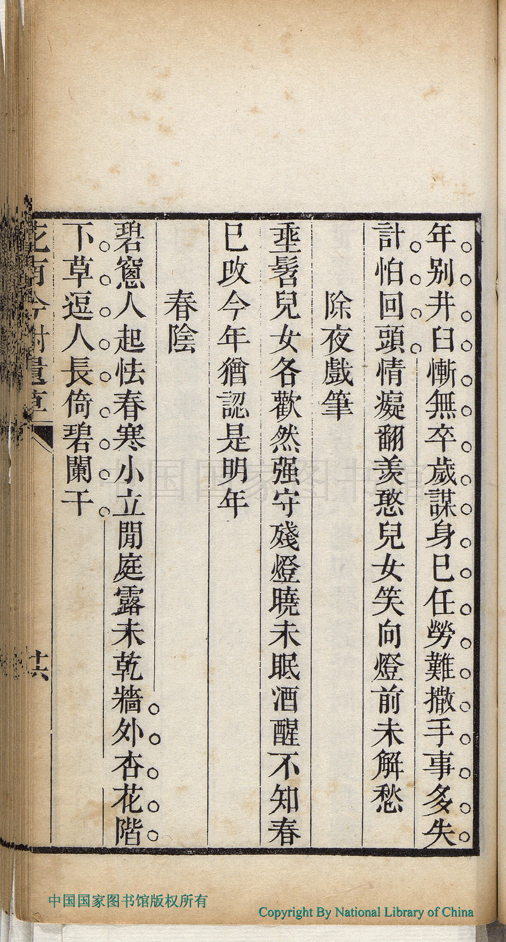 年別井臼慚無卒歲謀身已任勞難撒手事多失
計怕回頭情癡翻羨憨兒女笑向燈前未解愁
除夜戲筆
埀髫兒女各歡然强守殘燈曉未眠酒醒不知春
已改今年猶認是明年
春陰
碧窻人起怯春寒小立閒庭露未乾牆外杏花階
下草逗人長倚碧闌干
十六
中国国家图书馆版权所有
Copyright By National Library of China